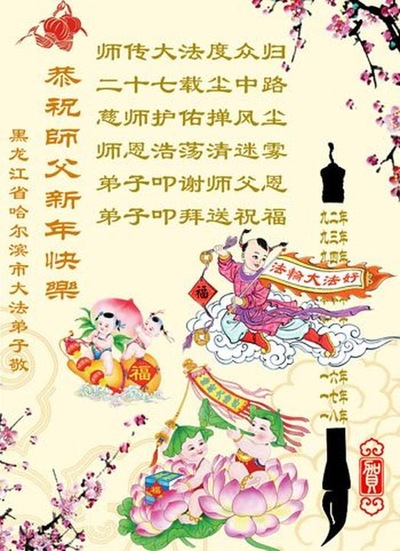 师传大法度众归
二十七载尘中路
慈师护佑掸风尘
师恩浩荡清迷雾
弟子叩谢师父恩
弟子叩拜送祝福
恭祝師父新年快樂
黑龙江省哈尔滨市大法弟子敬
九二年
九三年
九四年
法輪大法好
福
福
一六年
一七年
一八年
賀